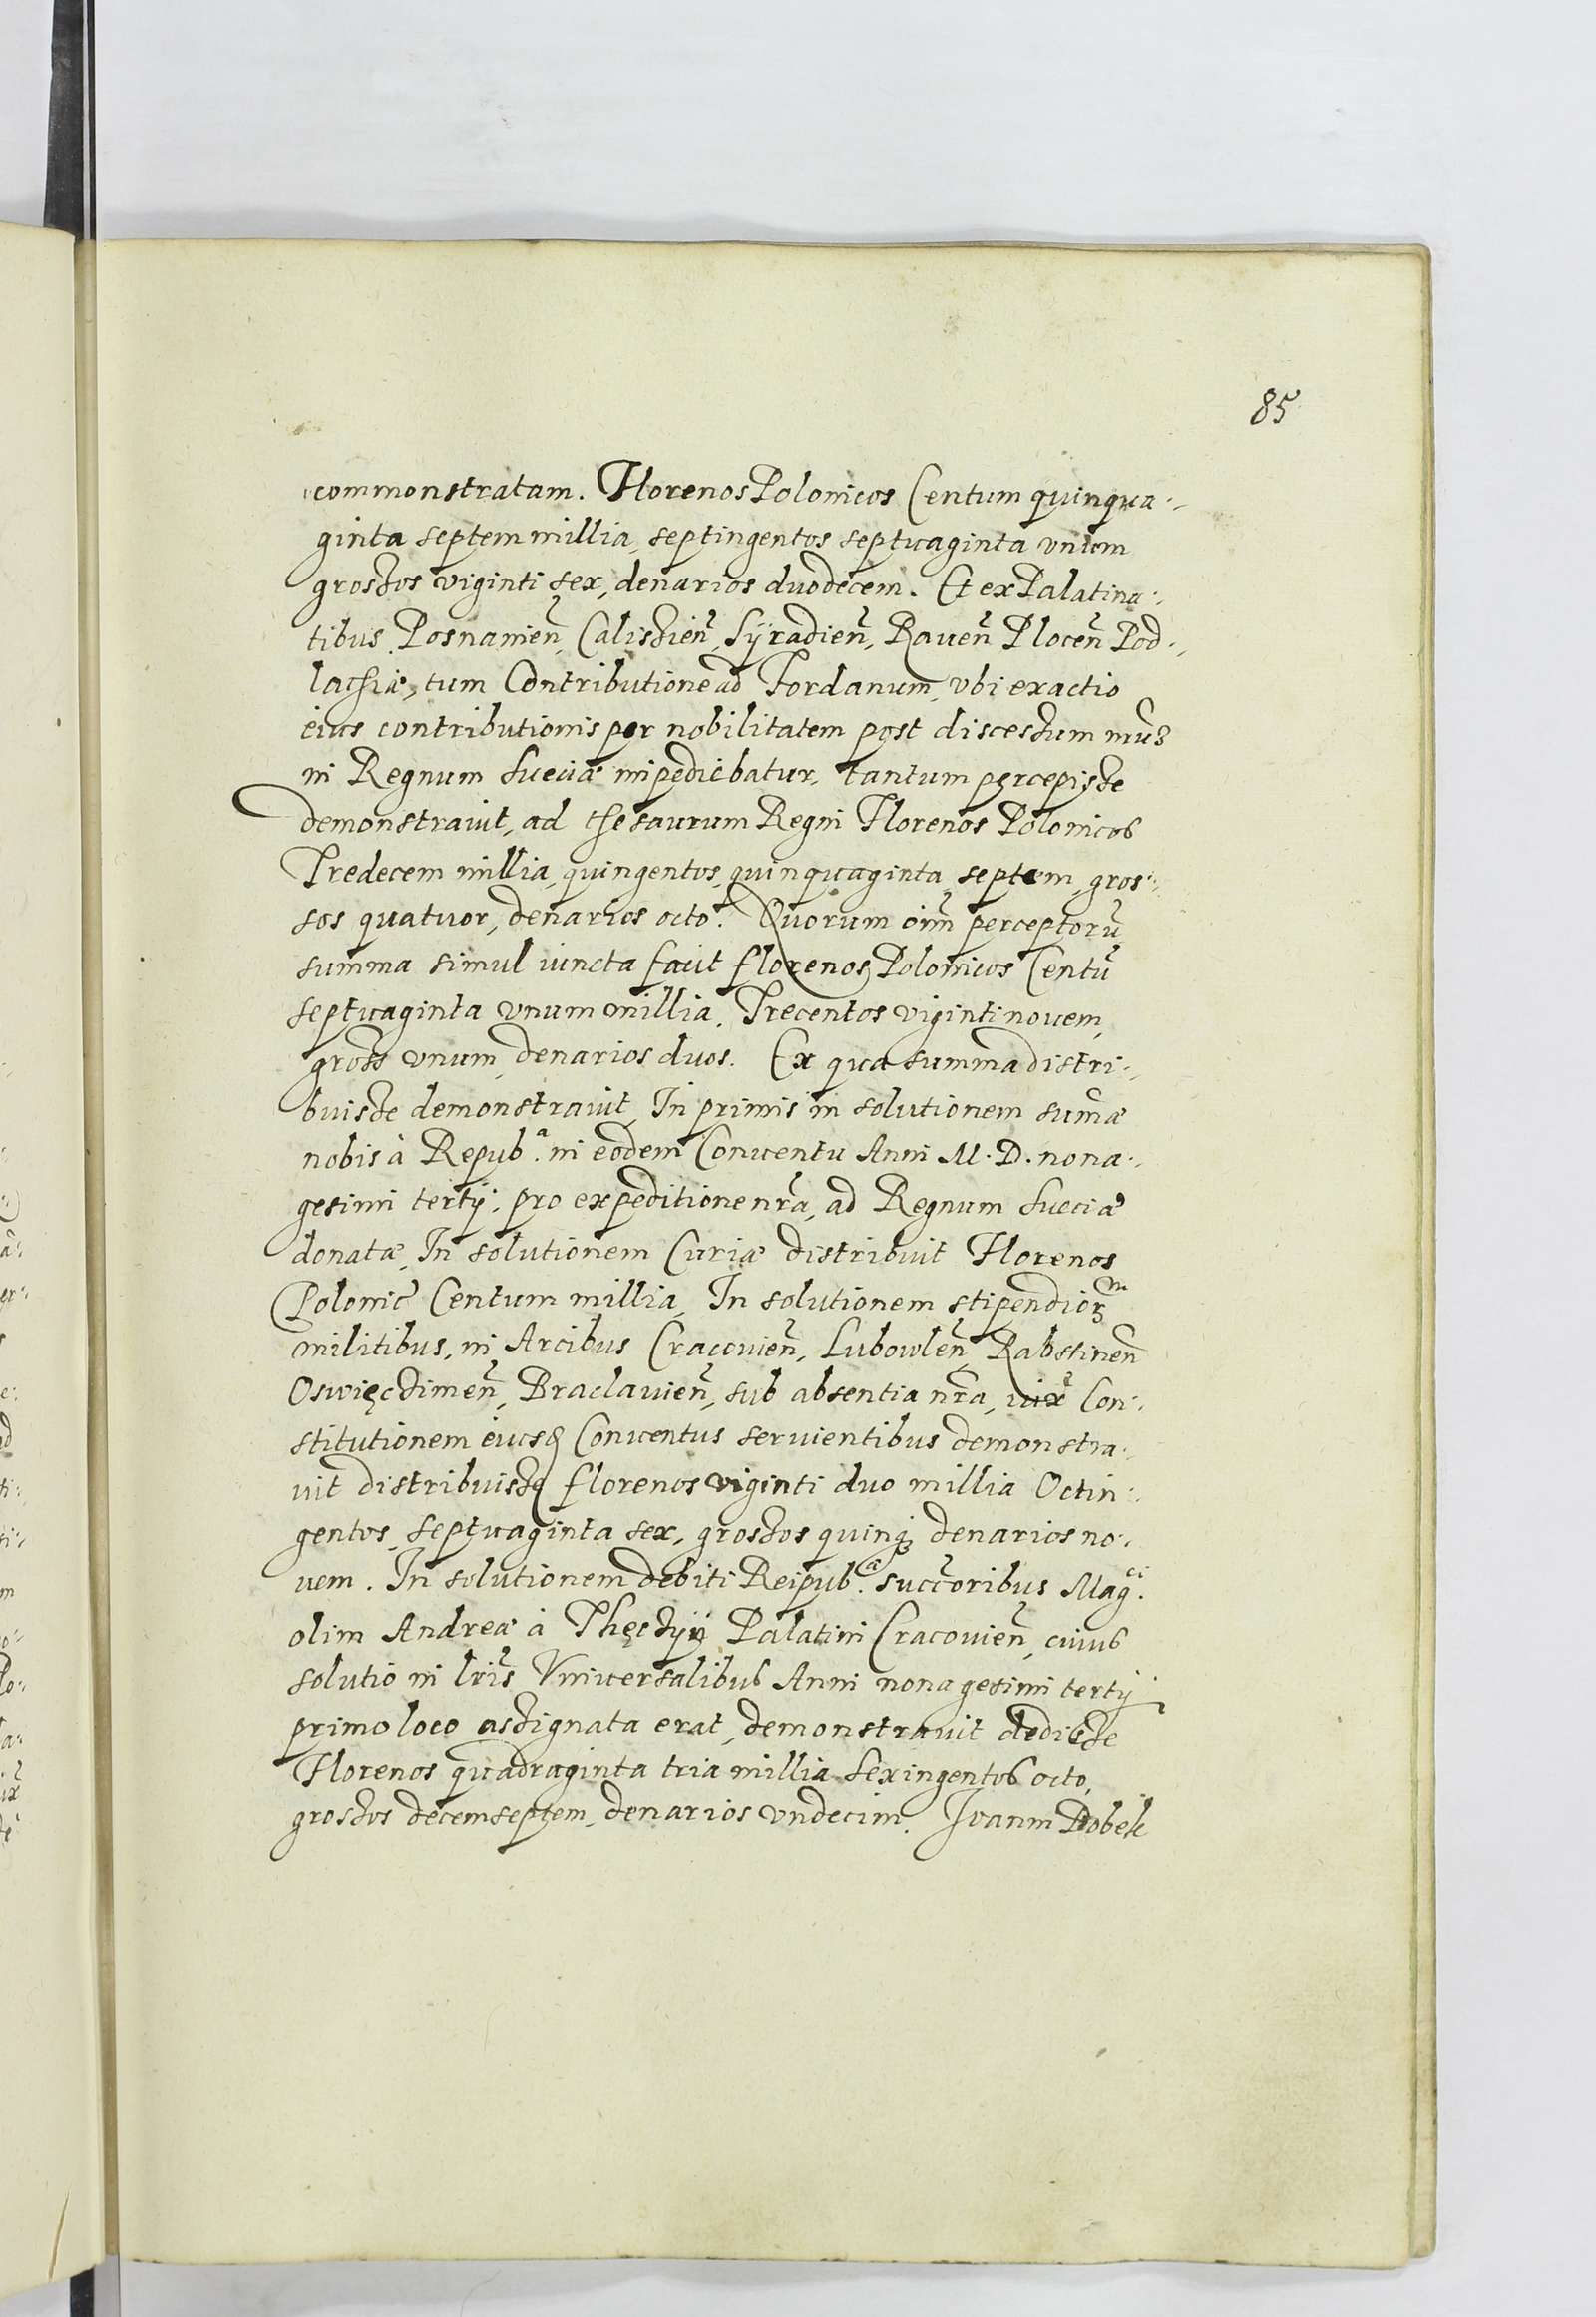 85
commonstratam. Florenos Polonicos Centum quinqua-
ginta septem millia, septingentos septuaginta vnum
grossos viginti sex, denarios duodecem. Et ex Palatina-
tibus Posnanieñ, Calissieñ, Syradieñ, Raueñ Ploceñ Pod-
lachiæ, tum Contributione ad Fordanum, vbi exactio
eius contributionis per nobilitatem post discessum nr̃um
in Regnum Sueciæ impediebatur, tantum percepisse
demonstrauit, ad thesaurum Regni Florenos Polonicos
Tredecem millia, quingentos, quinquaginta septem, gros-
sos quatuor, denarios octo. Quorum oim̃ perceptorũ
summa simul iuncta facit florenos Polonicos Centũ
septuaginta vnum millia, Trecentos viginti nouem,
gross vnum, denarios duos. Ex qua summa distri-
buisse demonstrauit, In primis in solutionem sum̃æ
nobis à Repub.ᵃ in eodem Conuentu Anni M. D. nona-
gesimi tertij. pro expeditione nr̃a, ad Regnum Sueciæ
donatæ, In solutionem Curiæ distribuit Florenos
Polonic̃ Centum millia, In solutionem stipendiorᵐ
militibus, in Arcibus Cracouieñ, Lubowleñ, Rabstineñ
Oswięcimeñ, Braclauieñ, sub absentia nr̃a, iux̃ Con-
stitutionem eiusđ Conuentus seruientibus demonstra-
uit distribuisse florenos viginti duo millia Octin-
gentos, septuaginta sex, grossos quinqꝫ denarios no-
uem. In solutionem debiti Reipub.ᵃ succ̃oribus Mag.ᶜⁱ
olim Andreæ à Thęczyn Palatini Cracouieñ, cuius
solutio in lr̃is Vniuersalibus Anni nonagesimi tertij
primo loco assignata erat, demonstrauit dedisse
Florenos quadraginta tria millia sexingentos octo,
grossos decemseptem, denarios vndecim. Ioanni Bobek